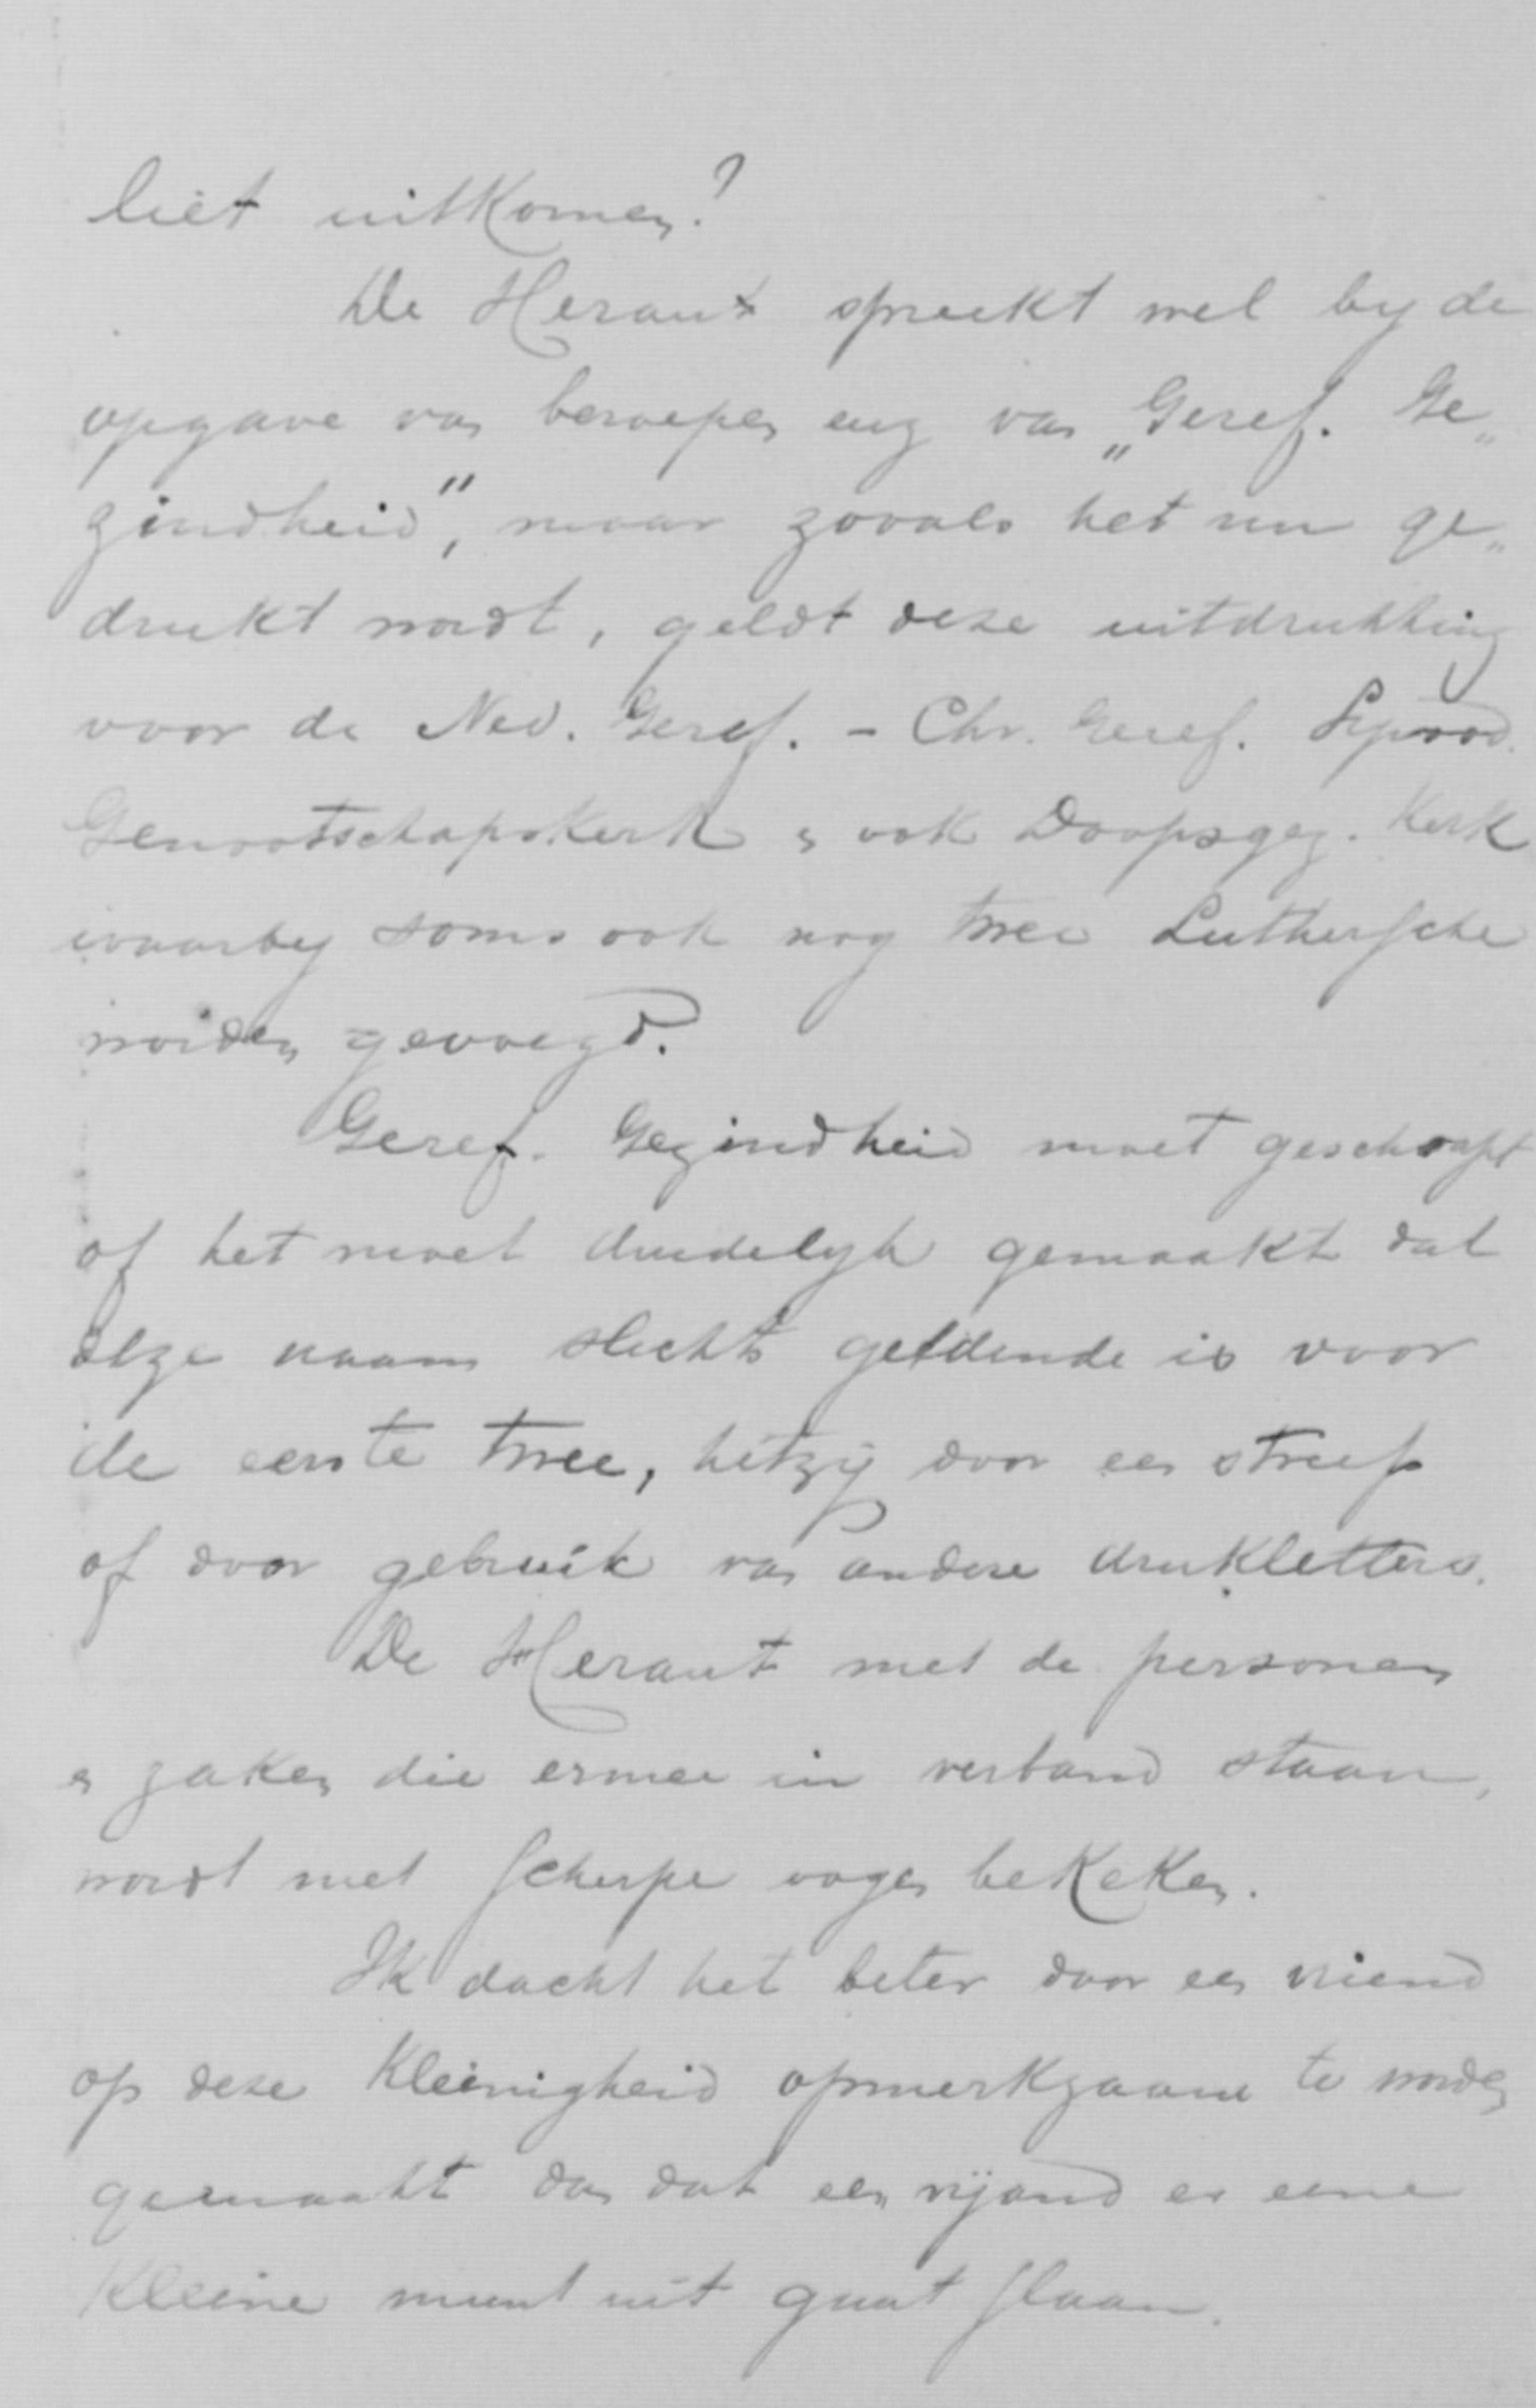 liet uitkomen?
De Heraut spreekt wel by de
opgave van beroepen enz van „Geref. Ge„
zindheid", maar zooals het nu ge„
drukt wordt, geldt deze uitdrukking
voor de Ned. Geref. – Chr. Geref. Synod.
Genootschapskerk en ook Doopsgez. Kerk
waarby soms ook nog twee Luthersche
worden gevoegd.
Geref. Gezindheid moet geschrapt
of het moet duidelyk gemaakt dat
deze naam slechts geldende is voor
de eerste twee, hetzij door een streep
of door gebruik van andere drukletters.
De Heraut met de personen
en zaken die ermee in verband staan,
wordt met scherpe oogen bekeken.
Ik dacht het beter door een vriend
op deze kleinigheid opmerkzaam te worden
gemaakt dan dat een vijand er eene
kleine munt uit gaat slaan.